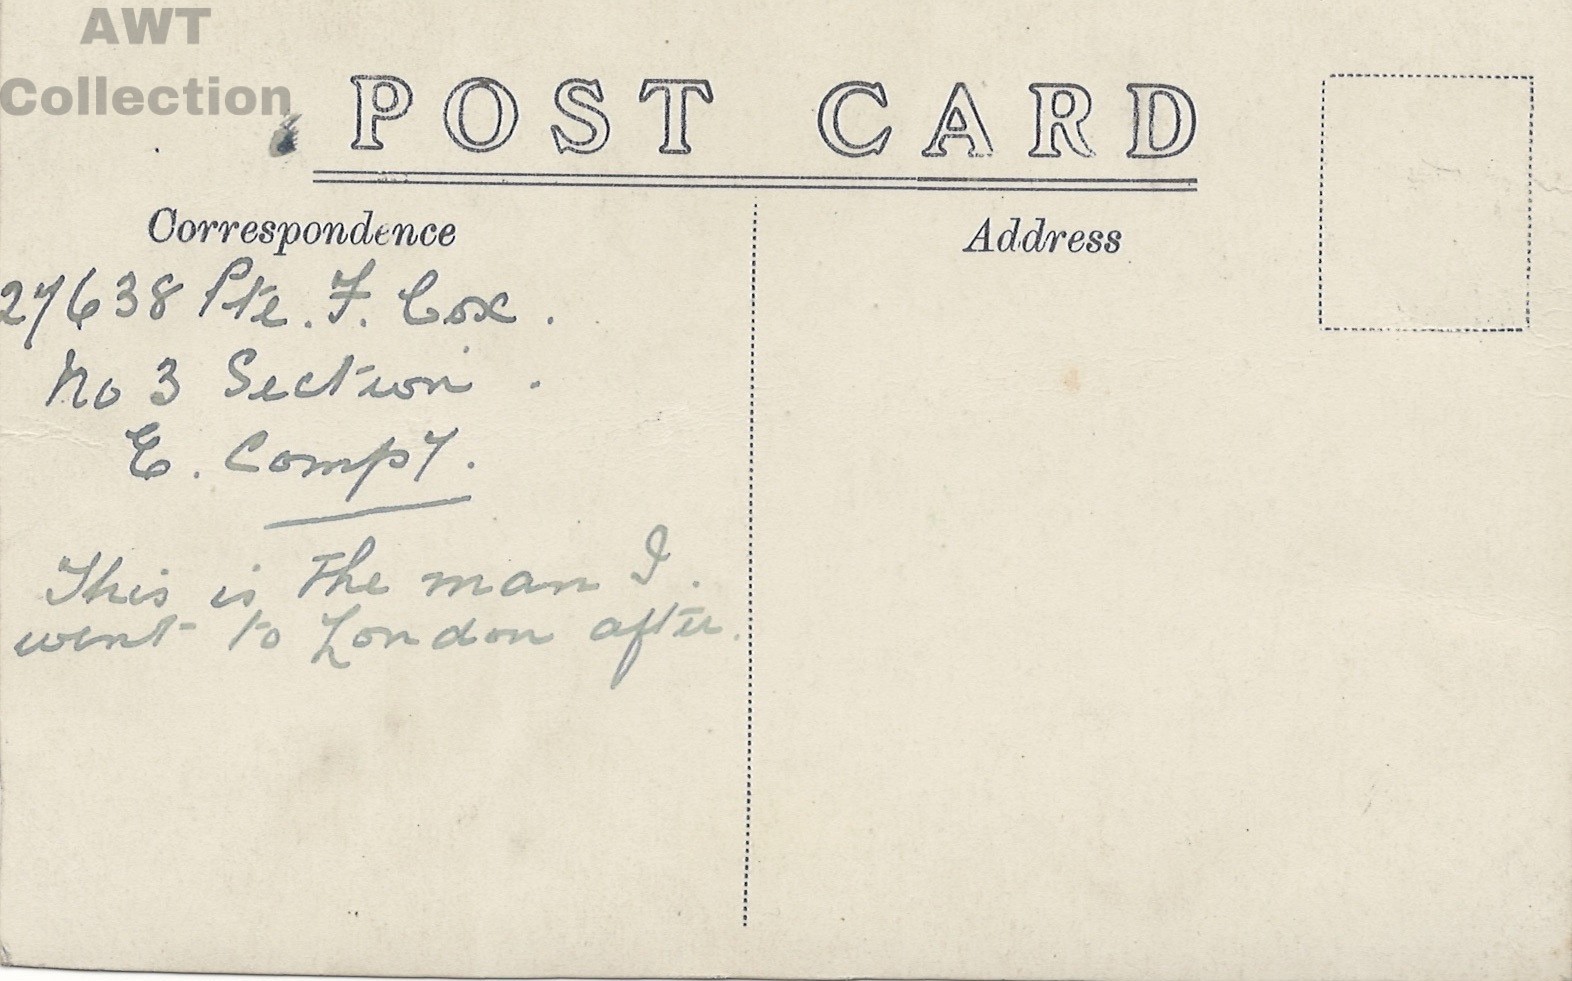 AWT
Collection
POST CARD
Correspondence
Address
27638 Pte. F. Cox.
No 3 Section.
E. Compy.
This is the man I.
went to London after.